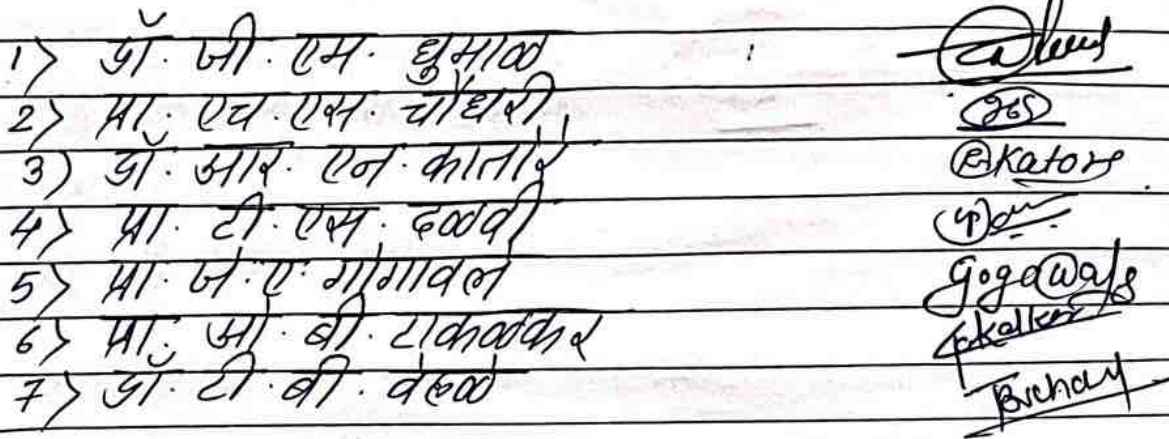 1) डॉ. जी. एम. धुमाळ :
2) प्रा. एच. एस. चौधरी
3) डॉ. आर. एन. कातोरे Katore
4) प्रा. टी. एस. दळवी
5) प्रा. जे. ए. गोगावले
6) प्रा. ओ. बी. टाकळकर
7) डॉ. टी. बी. वेहळे